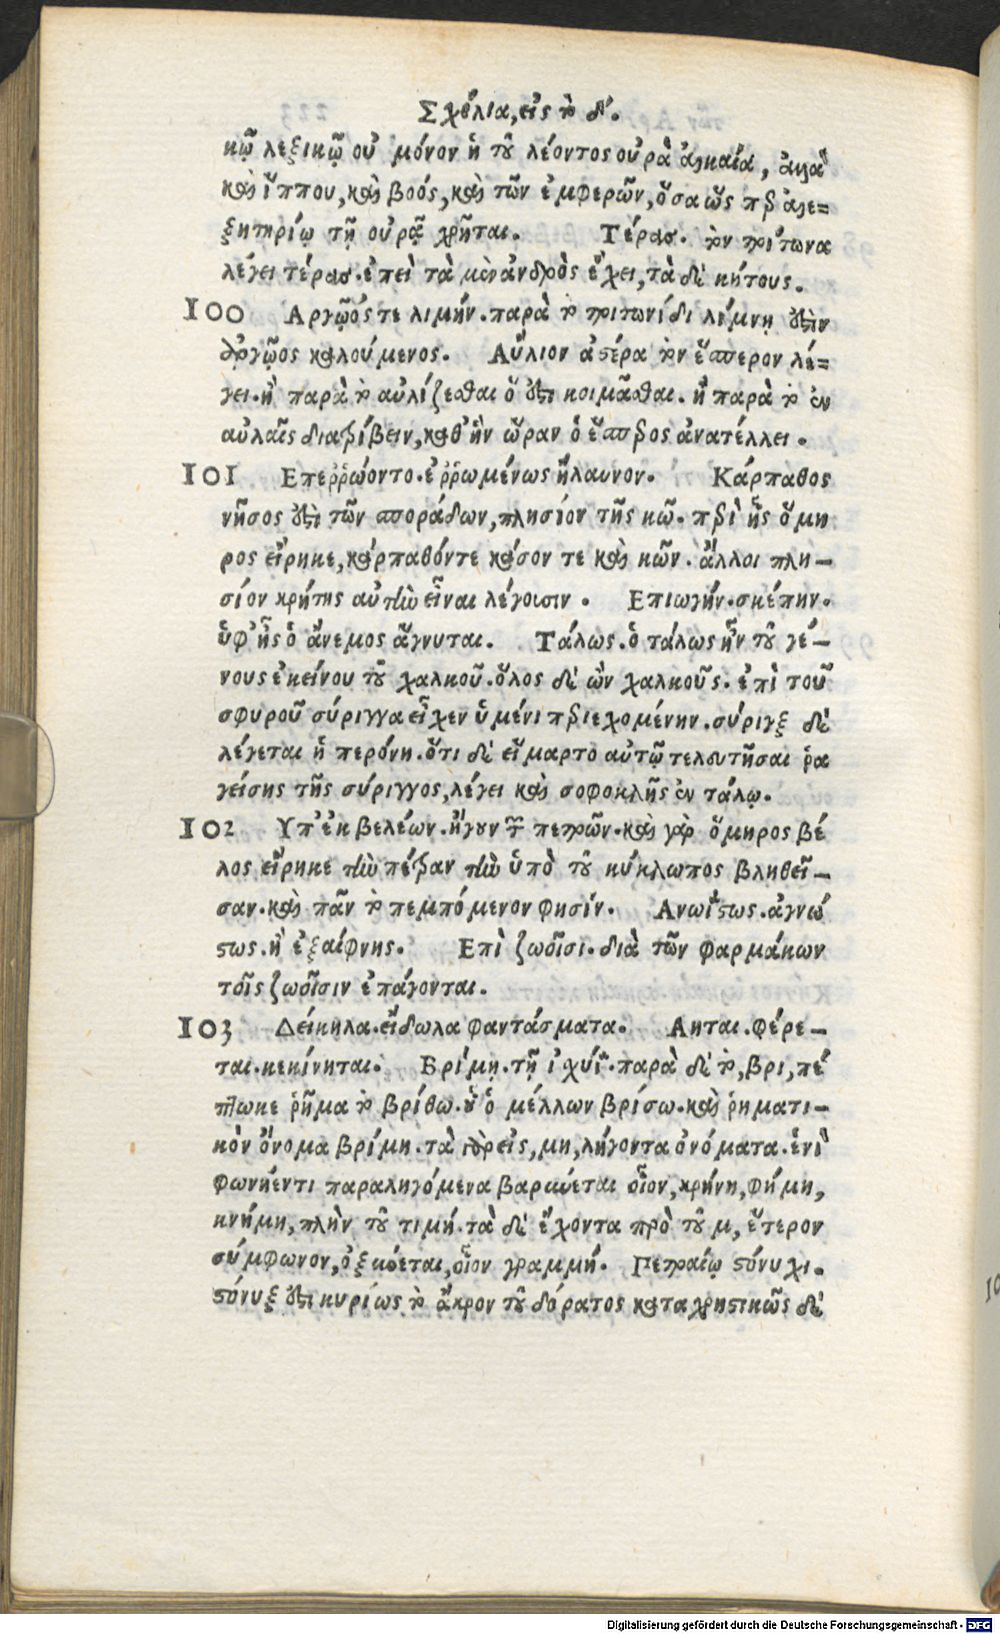 Σχόλια, εἰς τὸ δ'.
κῷ λεξικῷ οὐ μόνον ἡ τοῦ λέοντος οὐρὰ ἀλκαία, ἀλλὰ
καὶ ἵππου, καὶ βοός, καὶ τῶν ἐμφερῶν, ὅσα ὡς πρὸ ἀλε=
ξητηρίῳ τῇ οὐρᾷ χρῆται. Τέρας. τὸν τρίτωνα
λέγει τέρας. ἐπεὶ τὰ μὲν ἀνδρὸς ἔχει, τὰ δὲ κήτους.
100 Αργῷός τε λιμήν. παρὰ τὸ τριτωνίδι λίμνῃ ἐστὶν
ἀργῷος καλούμενος. Αὔλιον ἀστέρα τὸν ἕσπερον λέ=
γει. ἢ παρὰ τὸ αὐλίζεσθαι ὅ ἐστι κοιμᾶσθαι. ἢ παρὰ τὸ ἐν
αὐλαῖς διατρίβειν, καθ' ἣν ὥραν ὁ ἕσπερος ἀνατέλλει.
101 Επεῤῥώοντο. ἐῤῥωμένως ἤλαυνον. Κάρπαθος
νῆσος ἐστὶ τῶν σποράδων, πλησίον τῆς κῶ. περὶ ἧς ὅμη
ρος εἴρηκε, κάρπαθόν τε κάσον τε καὶ κῶν. ἄλλοι πλη-
σίον κρήτης αὐτὴν εἶναι λέγουσιν. Επιωγήν. σκέπην.
ὑφ' ἧς ὁ ἄνεμος ἄγνυται. Τάλως. ὁ τάλως ἦν τοῦ γέ-
νους ἐκείνου τοῦ χαλκοῦ. ὅλος δὲ ὢν χαλκοῦς. ἐπὶ τοῦ
σφυροῦ σύριγγα εἶχεν ὑμένι περιεχομένην. σύριγξ δὲ
λέγεται ἡ περόνη. ὅτι δὲ εἵμαρτο αὐτῷ τελευτῆσαι ῥα
γείσης τῆς σύριγγος, λέγει καὶ σοφοκλῆς ἐν τάλῳ.
102 Υπ' ἐκ βελέων. ἤγουν τῶν πετρῶν. καὶ γὰρ ὅμηρος βέ
λος εἴρηκε τὴν πέτραν τὴν ὑπὸ τοῦ κύκλωπος βληθεῖ-
σαν. καὶ πᾶν τὸ πεμπόμενον φησίν. Ανωΐστως. ἀγνώ
στως. ἢ ἐξαίφνης. Επὶ ζωοῖσι. διὰ τῶν φαρμάκων
τοῖς ζωοῖσιν ἐπάγονται.
103 Δείκηλα. εἴδωλα φαντάσματα. Αηται. φέρε-
ται. κεκίνηται. Βρίμῃ. τῇ ἰσχύϊ. παρὰ δὲ τὸ, βρι, πέ
πλωκε ῥῆμα τὸ βρίθω. οὗ ὁ μέλλων βρίσω. καὶ ῥηματι-
κὸν ὄνομα βρίμη. τὰ γὰρ εἰς, μη, λήγοντα ὀνόματα. ἑνὶ
φωνήεντι παραληγόμενα βαρύνεται οἷον, κρήνη, φήμη,
κνήμη, πλὴν τοῦ τιμή. τὰ δὲ ἔχοντα πρὸ τοῦ μ, ἕτερον
σύμφωνον, ὀξύνεται, οἷον γραμμή. Πετραίῳ στόνυχι.
στόνυξ ἐστι κυρίως τὸ ἄκρον τοῦ δόρατος καταχρηστικῶς δὲ
Digitalisierung gefördert durch die Deutsche Forschungsgemeinschaft - DFG